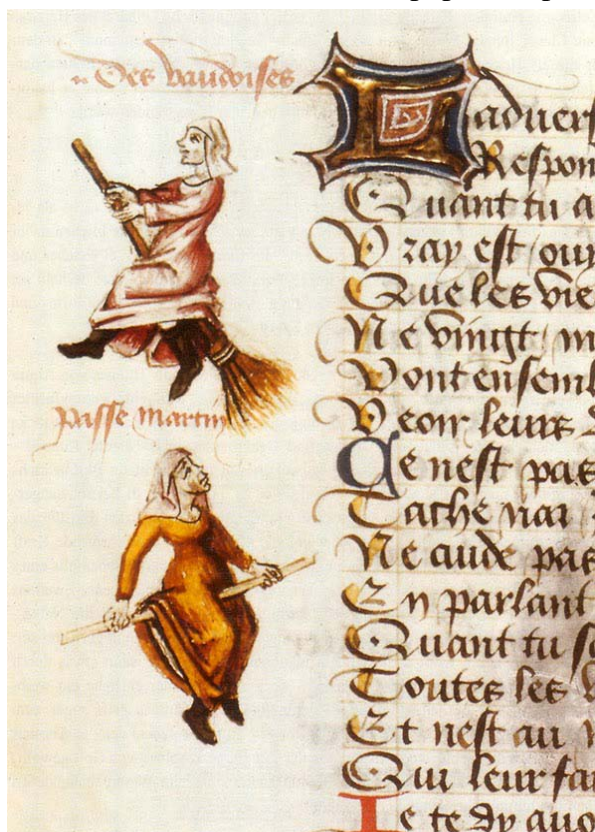 Des vaudoises
passe martin
Laduers
Respon
Quant tu a
Vray est ouy
Que les vie
Ne vingt m
Vont ensembl
Veoir leurs
Ce nest pas
Tache
Ne cuide pas
En parlant
Quant tu s
Toutes les v
Et nest au
Qui leur fai
Ie te dy quo